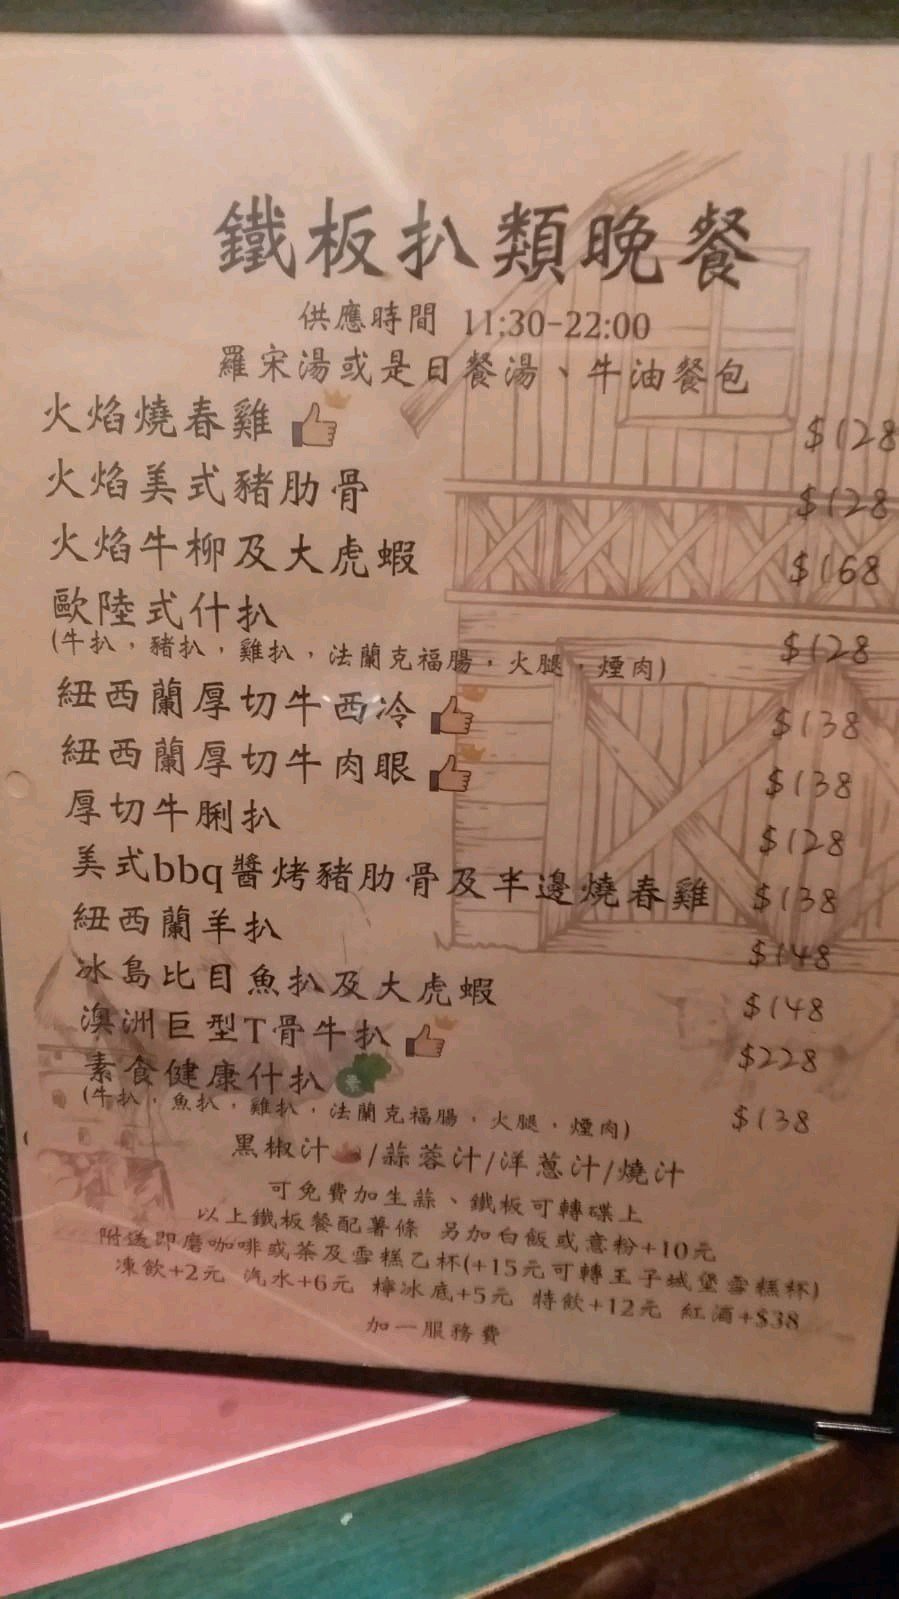 鐵板扒類晚餐
供應時間 11:30-22:00
羅宋湯或是日餐湯、牛油餐包
火焰燒春雞 $128
火焰美式豬肋骨 $128
火焰牛柳及大虎蝦 $168
歐陸式什扒 $128
(牛扒，豬扒，雞扒，法蘭克福腸，火腿，煙肉)
紐西蘭厚切牛西冷 $138
紐西蘭厚切牛肉眼 $138
厚切牛脷扒 $128
美式bbq醬烤豬肋骨及半邊燒春雞 $138
紐西蘭羊扒 $148
冰島比目魚扒及大虎蝦 $148
澳洲巨型T骨牛扒 $228
素食健康什扒 $138
(牛扒，魚扒，雞扒，法蘭克福腸，火腿，煙肉)
黑椒汁/蒜蓉汁/洋蔥汁/燒汁
可免費加生蒜、鐵板可轉碟上
以上鐵板餐配薯條 另加白飯或意粉+10元
附送即磨咖啡或茶及雪糕乙杯(+15元可轉王子城堡雪糕杯)
凍飲+2元 汽水+6元 檸冰底+5元 特飲+12元 紅酒+$38
加一服務費